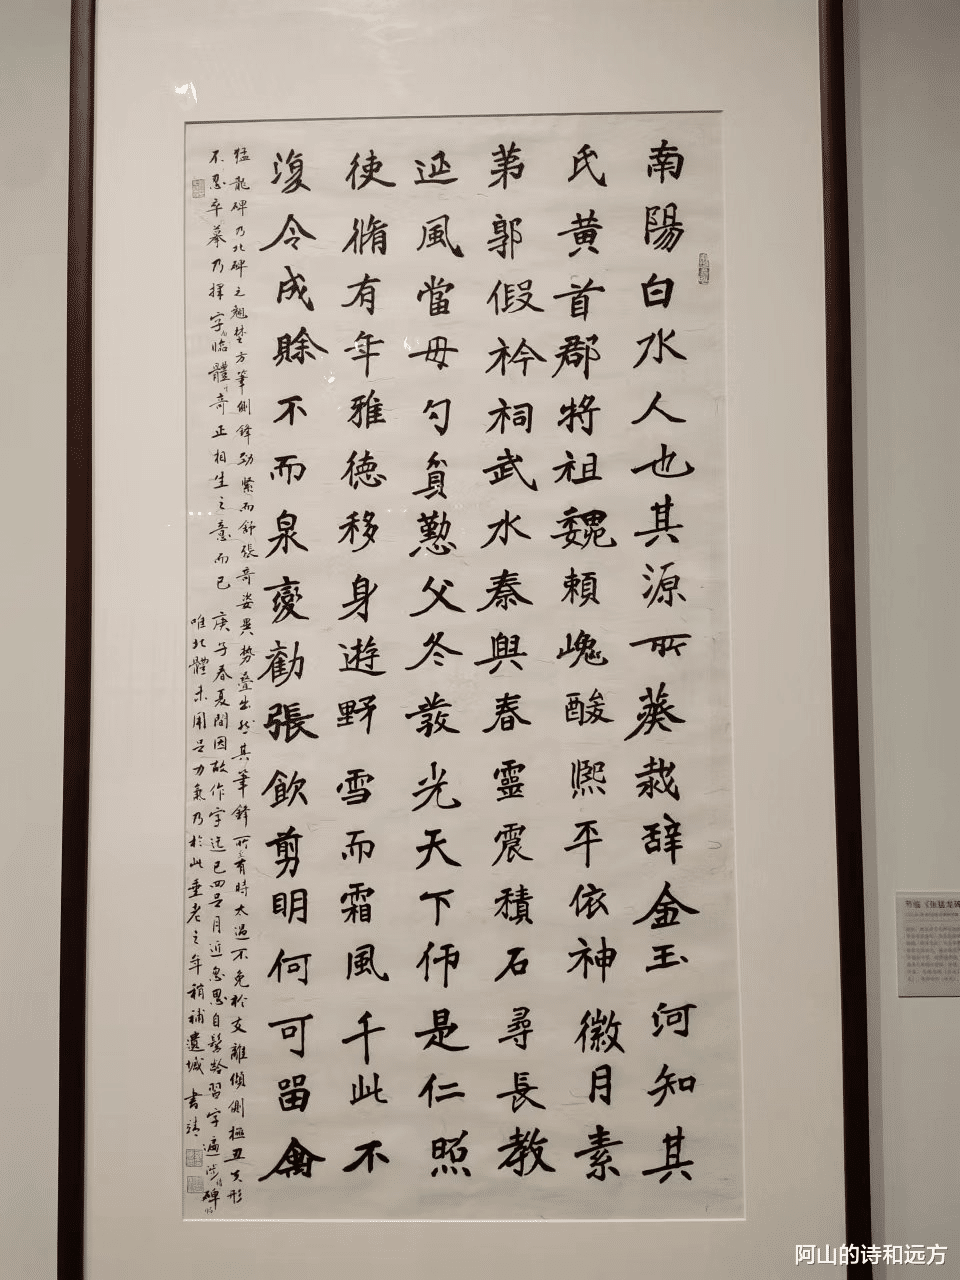 南陽白水人也其源所蔡哉辞金玉河知其
氏黄首郡将祖魏頼巍酸熙平依神徽月素
苐郭假衿祠武水秦與春靈震積石尋長教
延風當毋勺負懃父冬發光天下伂是仁照
使脩有年雅徳移身遊野雪而霜風千此不
復令成賒不而泉變勸張飲剪明何可留禽
猛龍碑乃北碑之翹楚方筆側鋒勁緊而舒張奇姿異勢疊出然其筆鋒所有時太過不免於支離傾側極丑失形
不忍卒摹乃擇字臨體奇正相生之意而已 庚子春夏間因故作字迄已四五月近忽思自髫齡習字遍涉碑
唯北體未用足力氣乃於此垂老之年稍補遺城 書靖
阿山的诗和远方